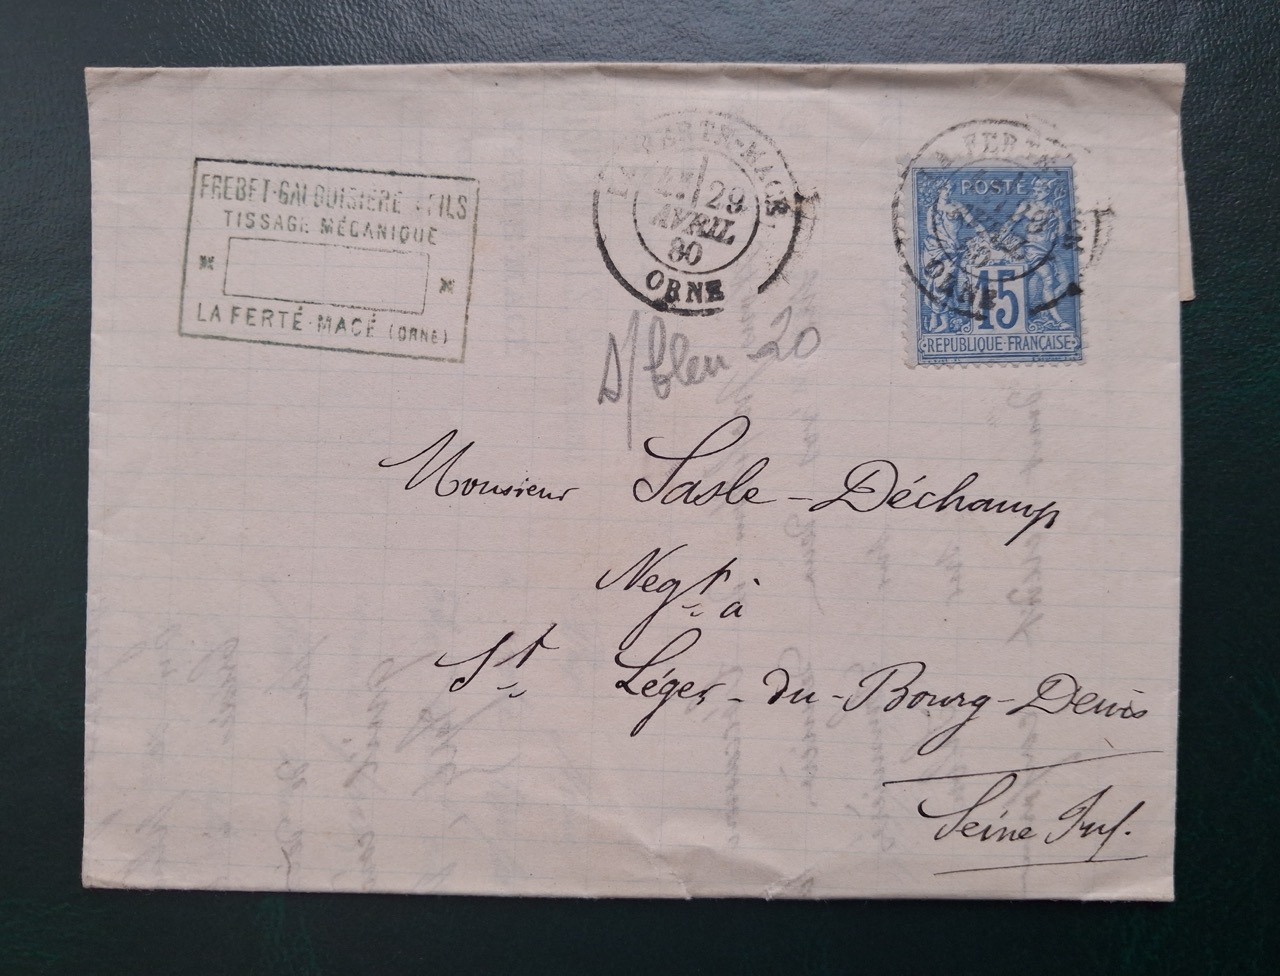 FREBET-GALOUISIÈRE & FILS
TISSAGE MÉCANIQUE
LA FERTÉ-MACÉ (ORNE)
LA FERTÉ-MACÉ
29
AVRIL
80
ORNE
LA FERTÉ
ORNE
POSTE
15
REPUBLIQUE FRANCAISE
S/bleu -20
Monsieur Sasle-Déchamp
Negt à
St Léger-du-Bourg-Denis
Seine Inf.